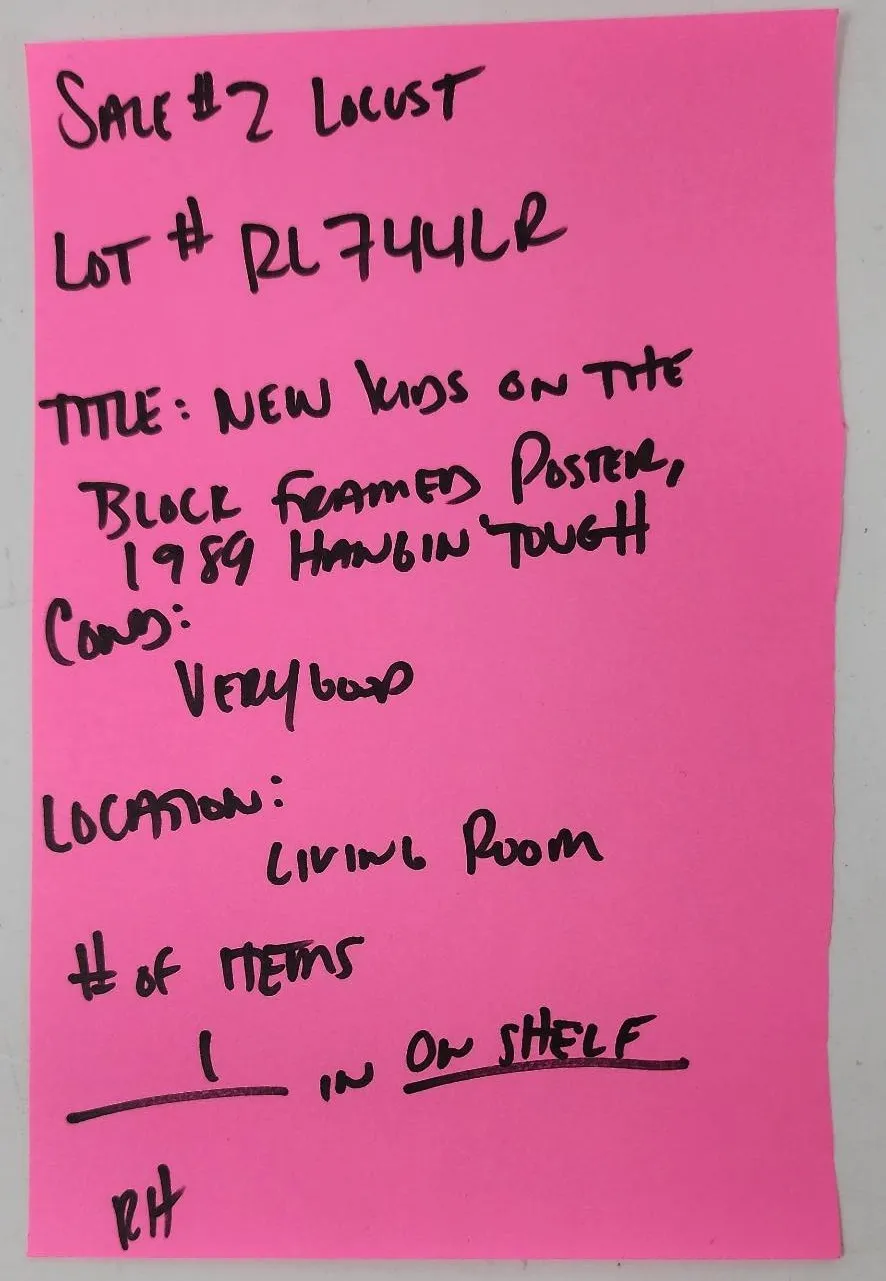 SALE #2 LOCUST
LOT # RL744LR
TITLE: NEW KIDS ON THE
BLOCK FRAMED POSTER,
1989 HANGIN' TOUGH
COND:
VERY GOOD
LOCATION:
LIVING ROOM
# OF ITEMS
1 IN ON SHELF
RH